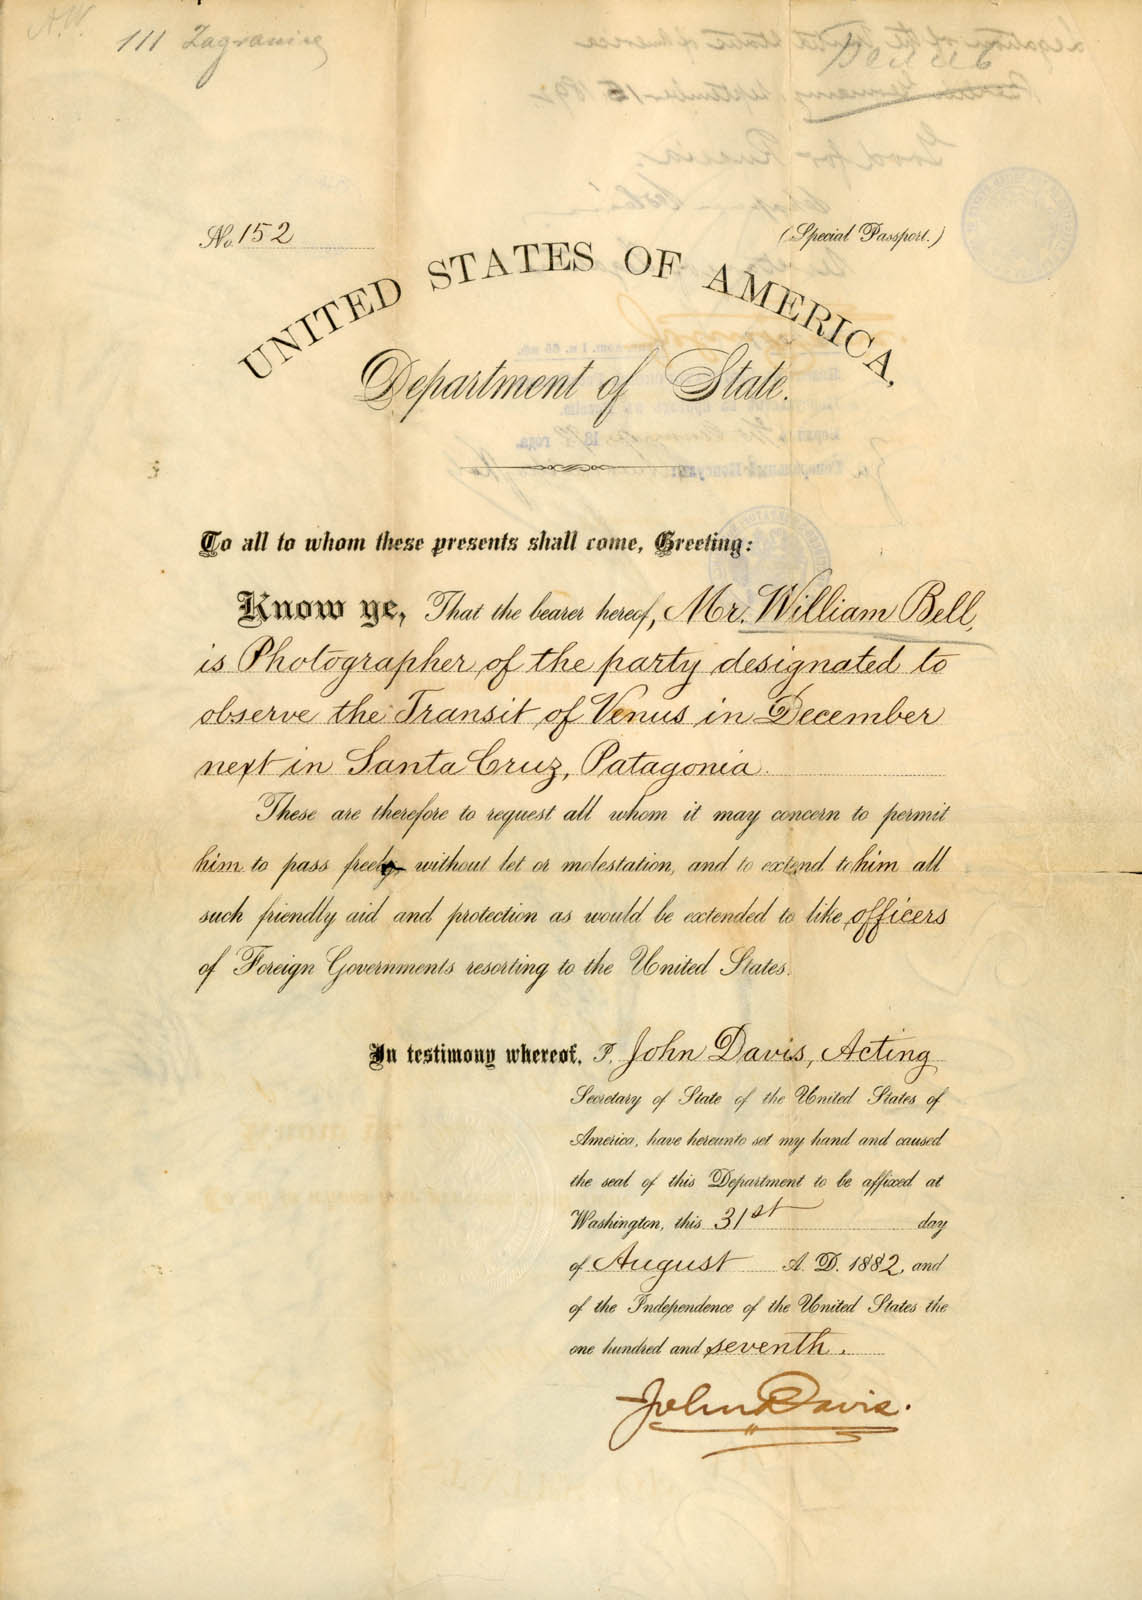 A.W.
111 Zagranice
No. 152
(Special Passport.)
UNITED STATES OF AMERICA,
Department of State.
To all to whom these presents shall come, Greeting:
Know ye, That the bearer hereof, Mr. William Bell,
is Photographer of the party designated to
observe the Transit of Venus in December
next in Santa Cruz, Patagonia.
These are therefore to request all whom it may concern to permit
him to pass freely without let or molestation, and to extend to him all
such friendly aid and protection as would be extended to like officers
of Foreign Governments resorting to the United States.
In testimony whereof, I, John Davis, Acting
Secretary of State of the United States of
America, have hereunto set my hand and caused
the seal of this Department to be affixed at
Washington, this 31st day
of August A. D. 1882, and
of the Independence of the United States the
one hundred and seventh.
John Davis.